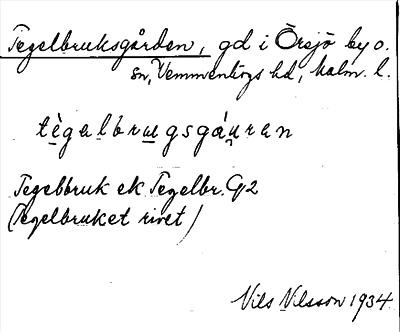 Tegelbruksgården, gd i Örsjö by o.
sn, Vemmenhögs hd, Malm. l.
tègalbrugsgáu̯ran
Tegelbruk ek Tegelbr. G2
(Tegelbruket rivet)
Nils Nilsson 1934